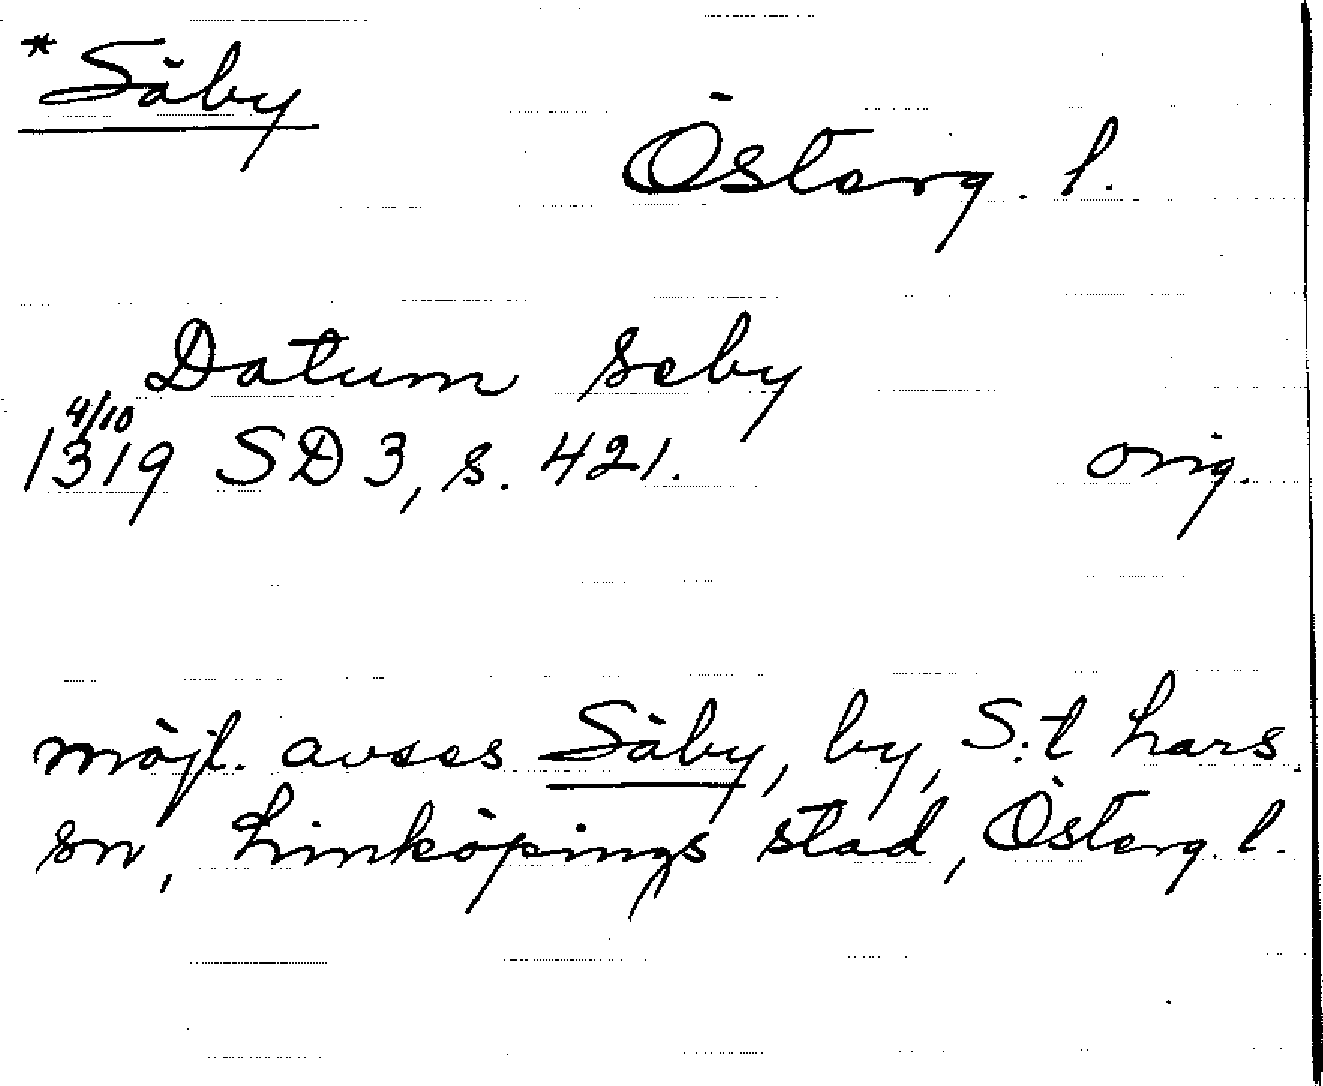 *Säby
Österg. l.
Datum Seby
4/10
1319 SD 3, s. 421. orig.
möjl. avses Säby, by, S:t Lars
sn, Linköpings stad, Österg. l.